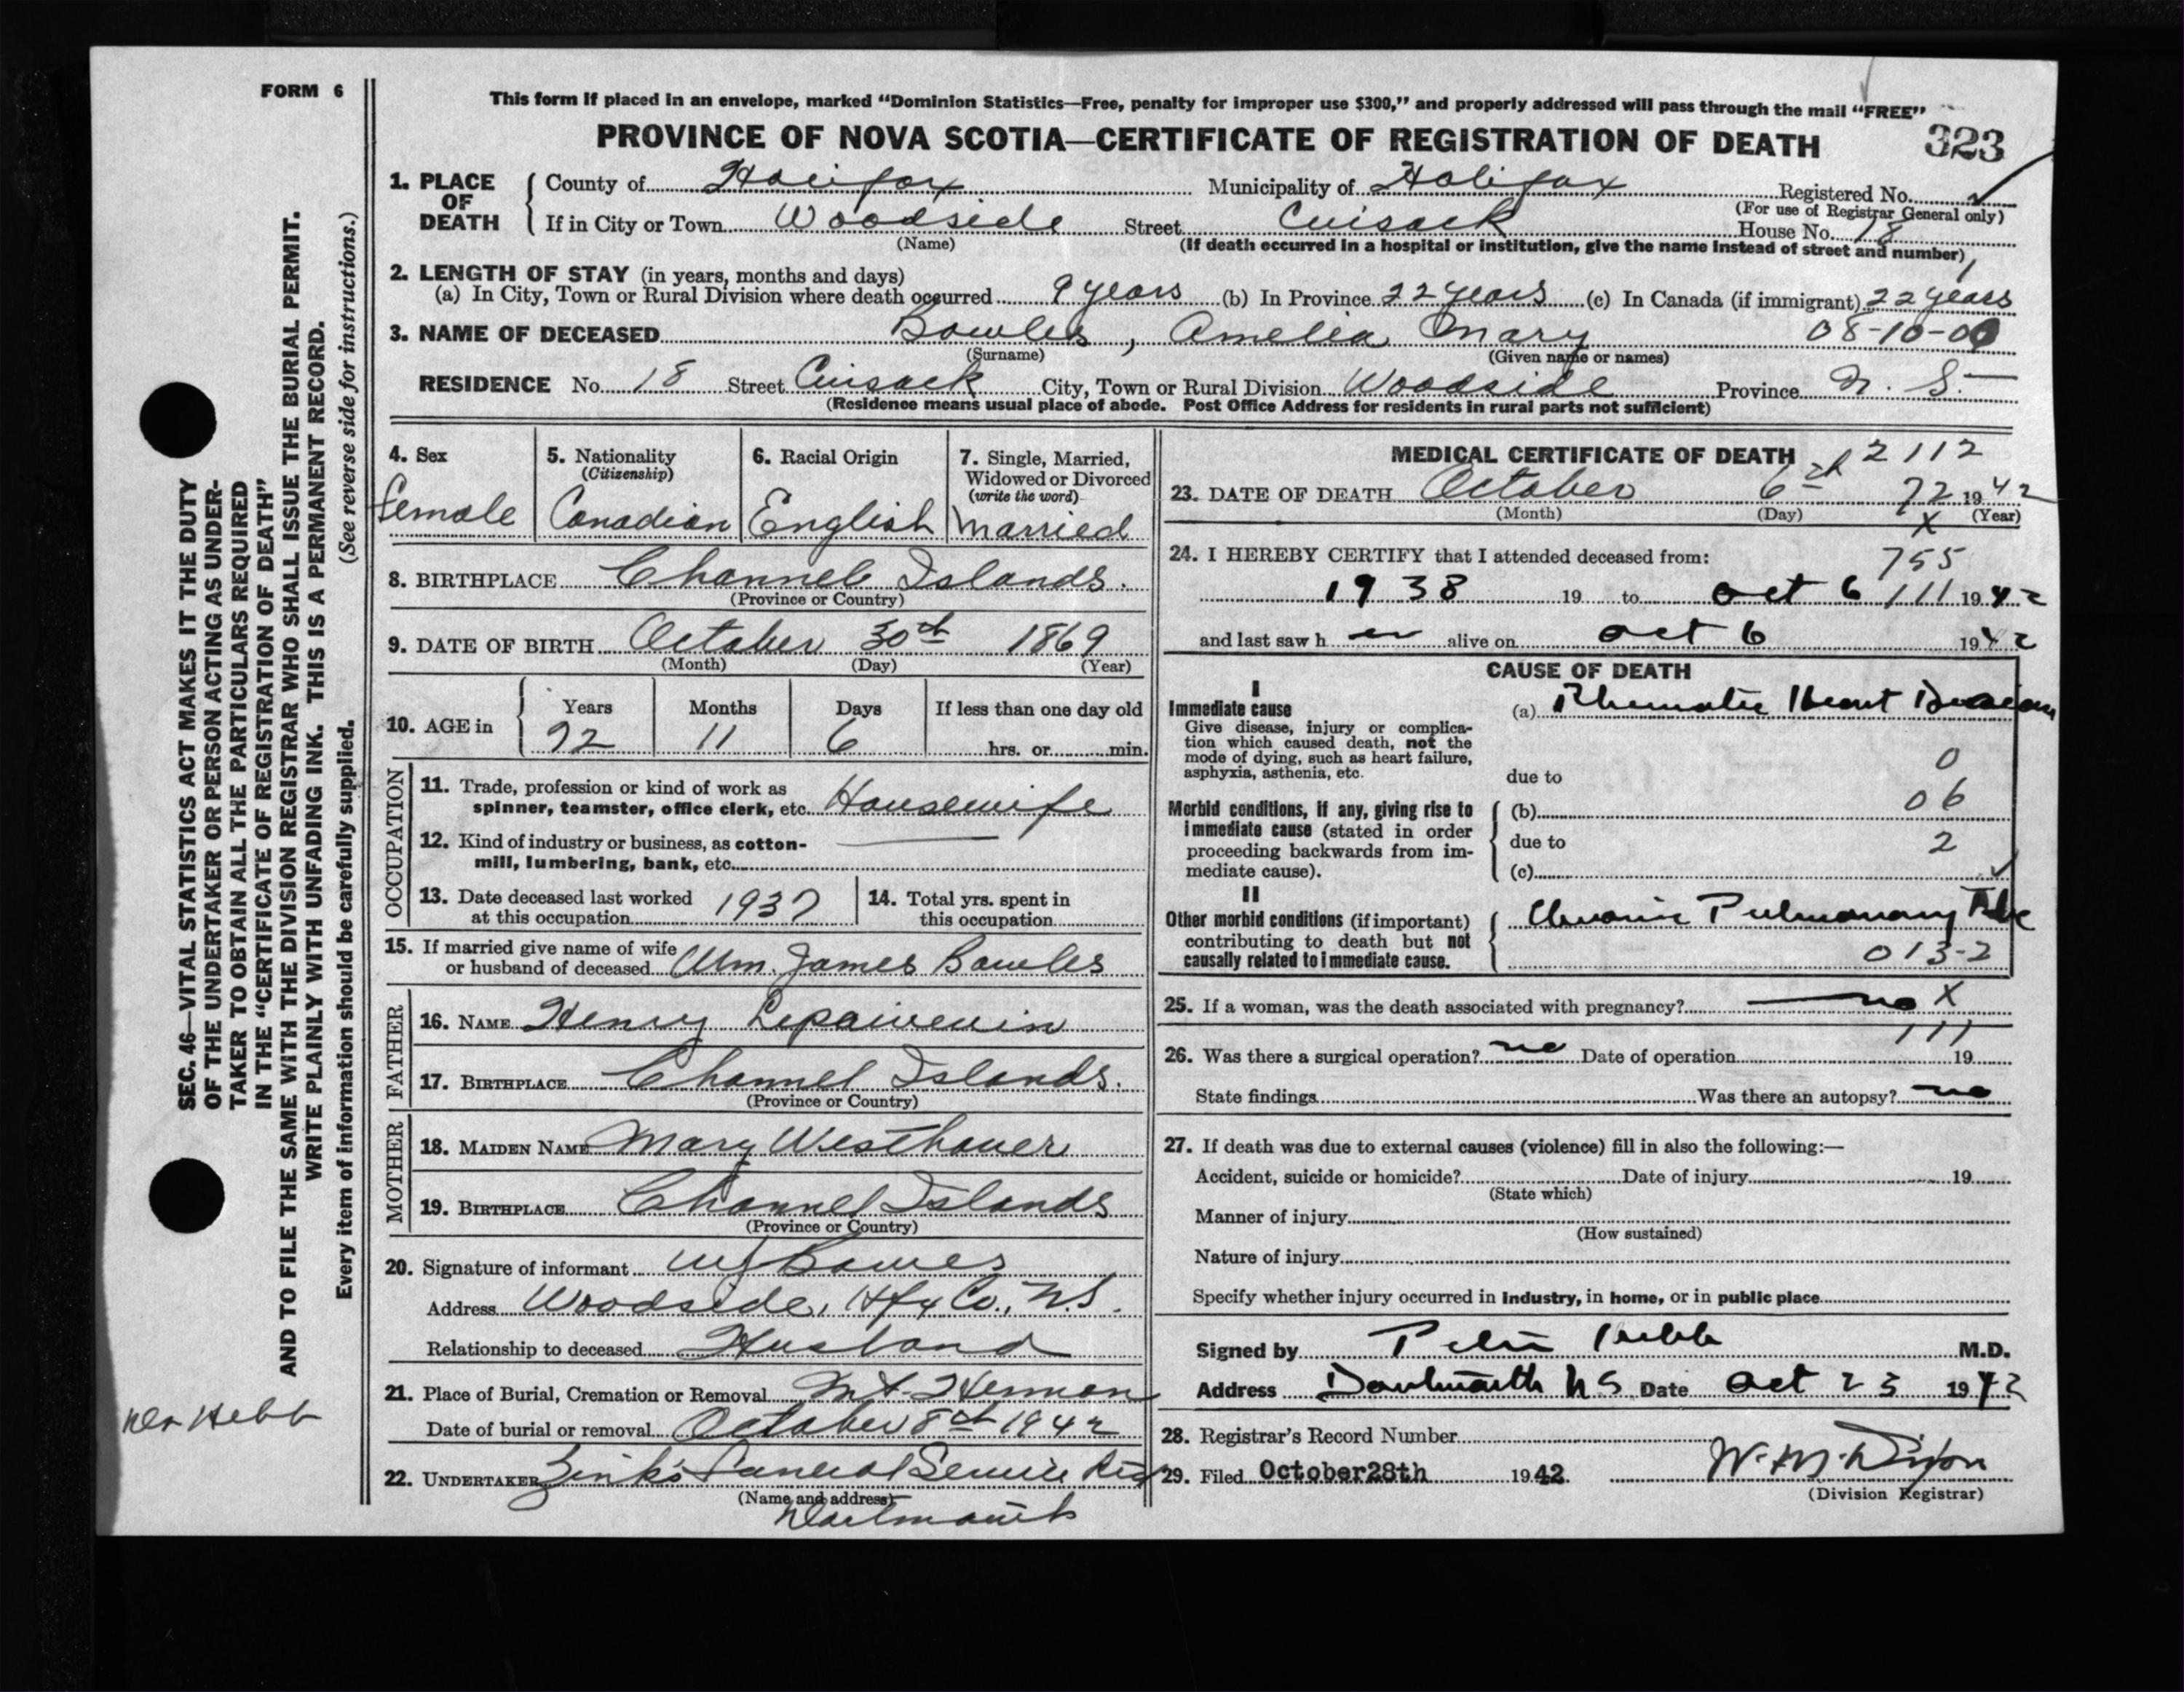 FORM 6
This form if placed in an envelope, marked “Dominion Statistics—Free, penalty for improper use $300,” and properly addressed will pass through the mail “FREE”
PROVINCE OF NOVA SCOTIA—CERTIFICATE OF REGISTRATION OF DEATH 323
1. PLACE OF DEATH County of Halifax Municipality of Halifax Registered No.
(For use of Registrar General only)
If in City or Town Woodside Street Cuisack House No. 18
(Name) (If death occurred in a hospital or institution, give the name instead of street and number)
2. LENGTH OF STAY (in years, months and days)
(a) In City, Town or Rural Division where death occurred 9 years (b) In Province 22 years (c) In Canada (if immigrant) 22 years
3. NAME OF DECEASED Bowles, Amelia Mary 08-10-00
(Surname) (Given name or names)
RESIDENCE No. 18 Street Cuisack City, Town or Rural Division Woodside Province N. S.
(Residence means usual place of abode. Post Office Address for residents in rural parts not sufficient)
4. Sex
Female
5. Nationality
(Citizenship)
Canadian
6. Racial Origin
English
7. Single, Married,
Widowed or Divorced
(write the word)
Married
8. BIRTHPLACE Channel Islands.
(Province or Country)
9. DATE OF BIRTH October 30th 1869
(Month) (Day) (Year)
10. AGE in Years Months Days If less than one day old
72 11 6 hrs. or min.
OCCUPATION
11. Trade, profession or kind of work as
spinner, teamster, office clerk, etc. Housewife
12. Kind of industry or business, as cotton-
mill, lumbering, bank, etc.
13. Date deceased last worked
at this occupation 1937
14. Total yrs. spent in
this occupation
15. If married give name of wife
or husband of deceased Wm. James Bowles
FATHER
16. NAME Henry
17. BIRTHPLACE Channel Islands.
(Province or Country)
MOTHER
18. MAIDEN NAME Mary Westhaver
19. BIRTHPLACE Channel Islands
(Province or Country)
20. Signature of informant WJ Bowles
Address Woodside, Hfx Co., N.S.
Relationship to deceased Husband
21. Place of Burial, Cremation or Removal Mt. Hermon
Date of burial or removal October 8th 1942
22. UNDERTAKER Zink's Funeral Service Reg
(Name and address)
Dartmouth
MEDICAL CERTIFICATE OF DEATH 2112
23. DATE OF DEATH October 6th 72 1942
(Month) (Day) (Year)
X
24. I HEREBY CERTIFY that I attended deceased from:
755
1938 19 to Oct 6 111 1942
and last saw h er alive on Oct 6 1942
CAUSE OF DEATH
I
Immediate cause
Give disease, injury or complica-
tion which caused death, not the
mode of dying, such as heart failure,
asphyxia, asthenia, etc.
(a) Rheumatic Heart Disease
0
due to
Morbid conditions, if any, giving rise to
immediate cause (stated in order
proceeding backwards from im-
mediate cause).
06
(b)
due to 2
(c)
II
Other morbid conditions (if important)
contributing to death but not
causally related to immediate cause.
Chronic Pulmonary Tbc
013-2
25. If a woman, was the death associated with pregnancy? no X
111
26. Was there a surgical operation? no Date of operation 19
State findings Was there an autopsy? no
27. If death was due to external causes (violence) fill in also the following:—
Accident, suicide or homicide? Date of injury 19
(State which)
Manner of injury
(How sustained)
Nature of injury
Specify whether injury occurred in industry, in home, or in public place
Signed by M.D.
Address Dartmouth N S Date Oct 23 1942
28. Registrar's Record Number
29. Filed October 28th 1942. W. M. Dixon
(Division Registrar)
SEC. 46—VITAL STATISTICS ACT MAKES IT THE DUTY
OF THE UNDERTAKER OR PERSON ACTING AS UNDER-
TAKER TO OBTAIN ALL THE PARTICULARS REQUIRED
IN THE “CERTIFICATE OF REGISTRATION OF DEATH”
AND TO FILE THE SAME WITH THE DIVISION REGISTRAR WHO SHALL ISSUE THE BURIAL PERMIT.
WRITE PLAINLY WITH UNFADING INK. THIS IS A PERMANENT RECORD.
Every item of information should be carefully supplied. (See reverse side for instructions.)
Hebb